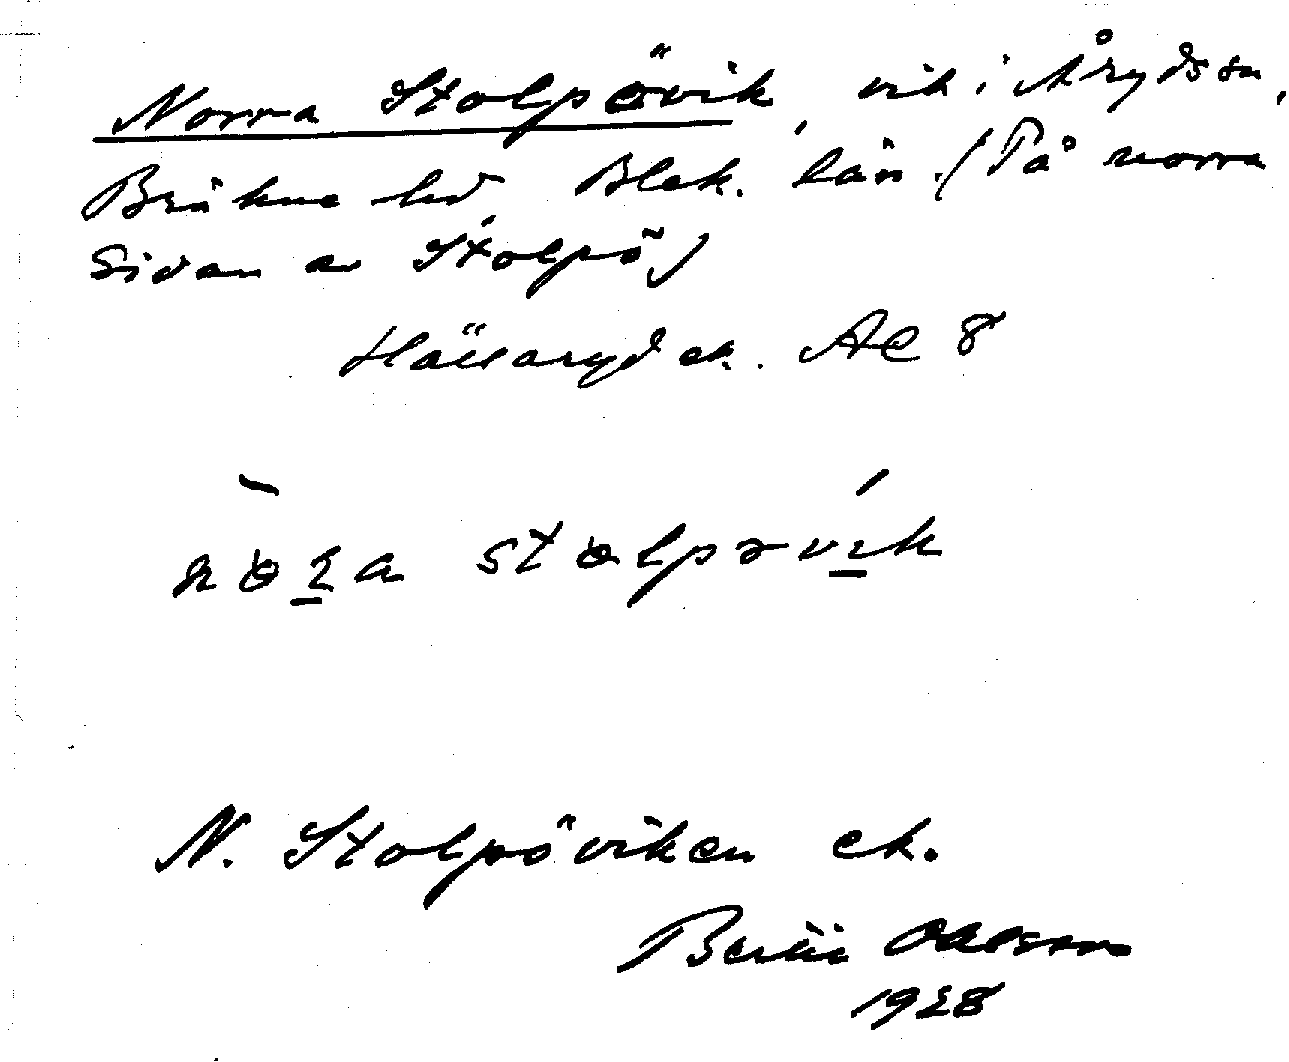 Norra Stolpövik, vik i Åryds sn,
Bräkne hd, Blek. län. (På norra
Sidan av Stolpö)
Hällaryd ek. AE 8
nɷra stɷlpəvik
N. Stolpöviken ek.
Bertil Olsson
1928